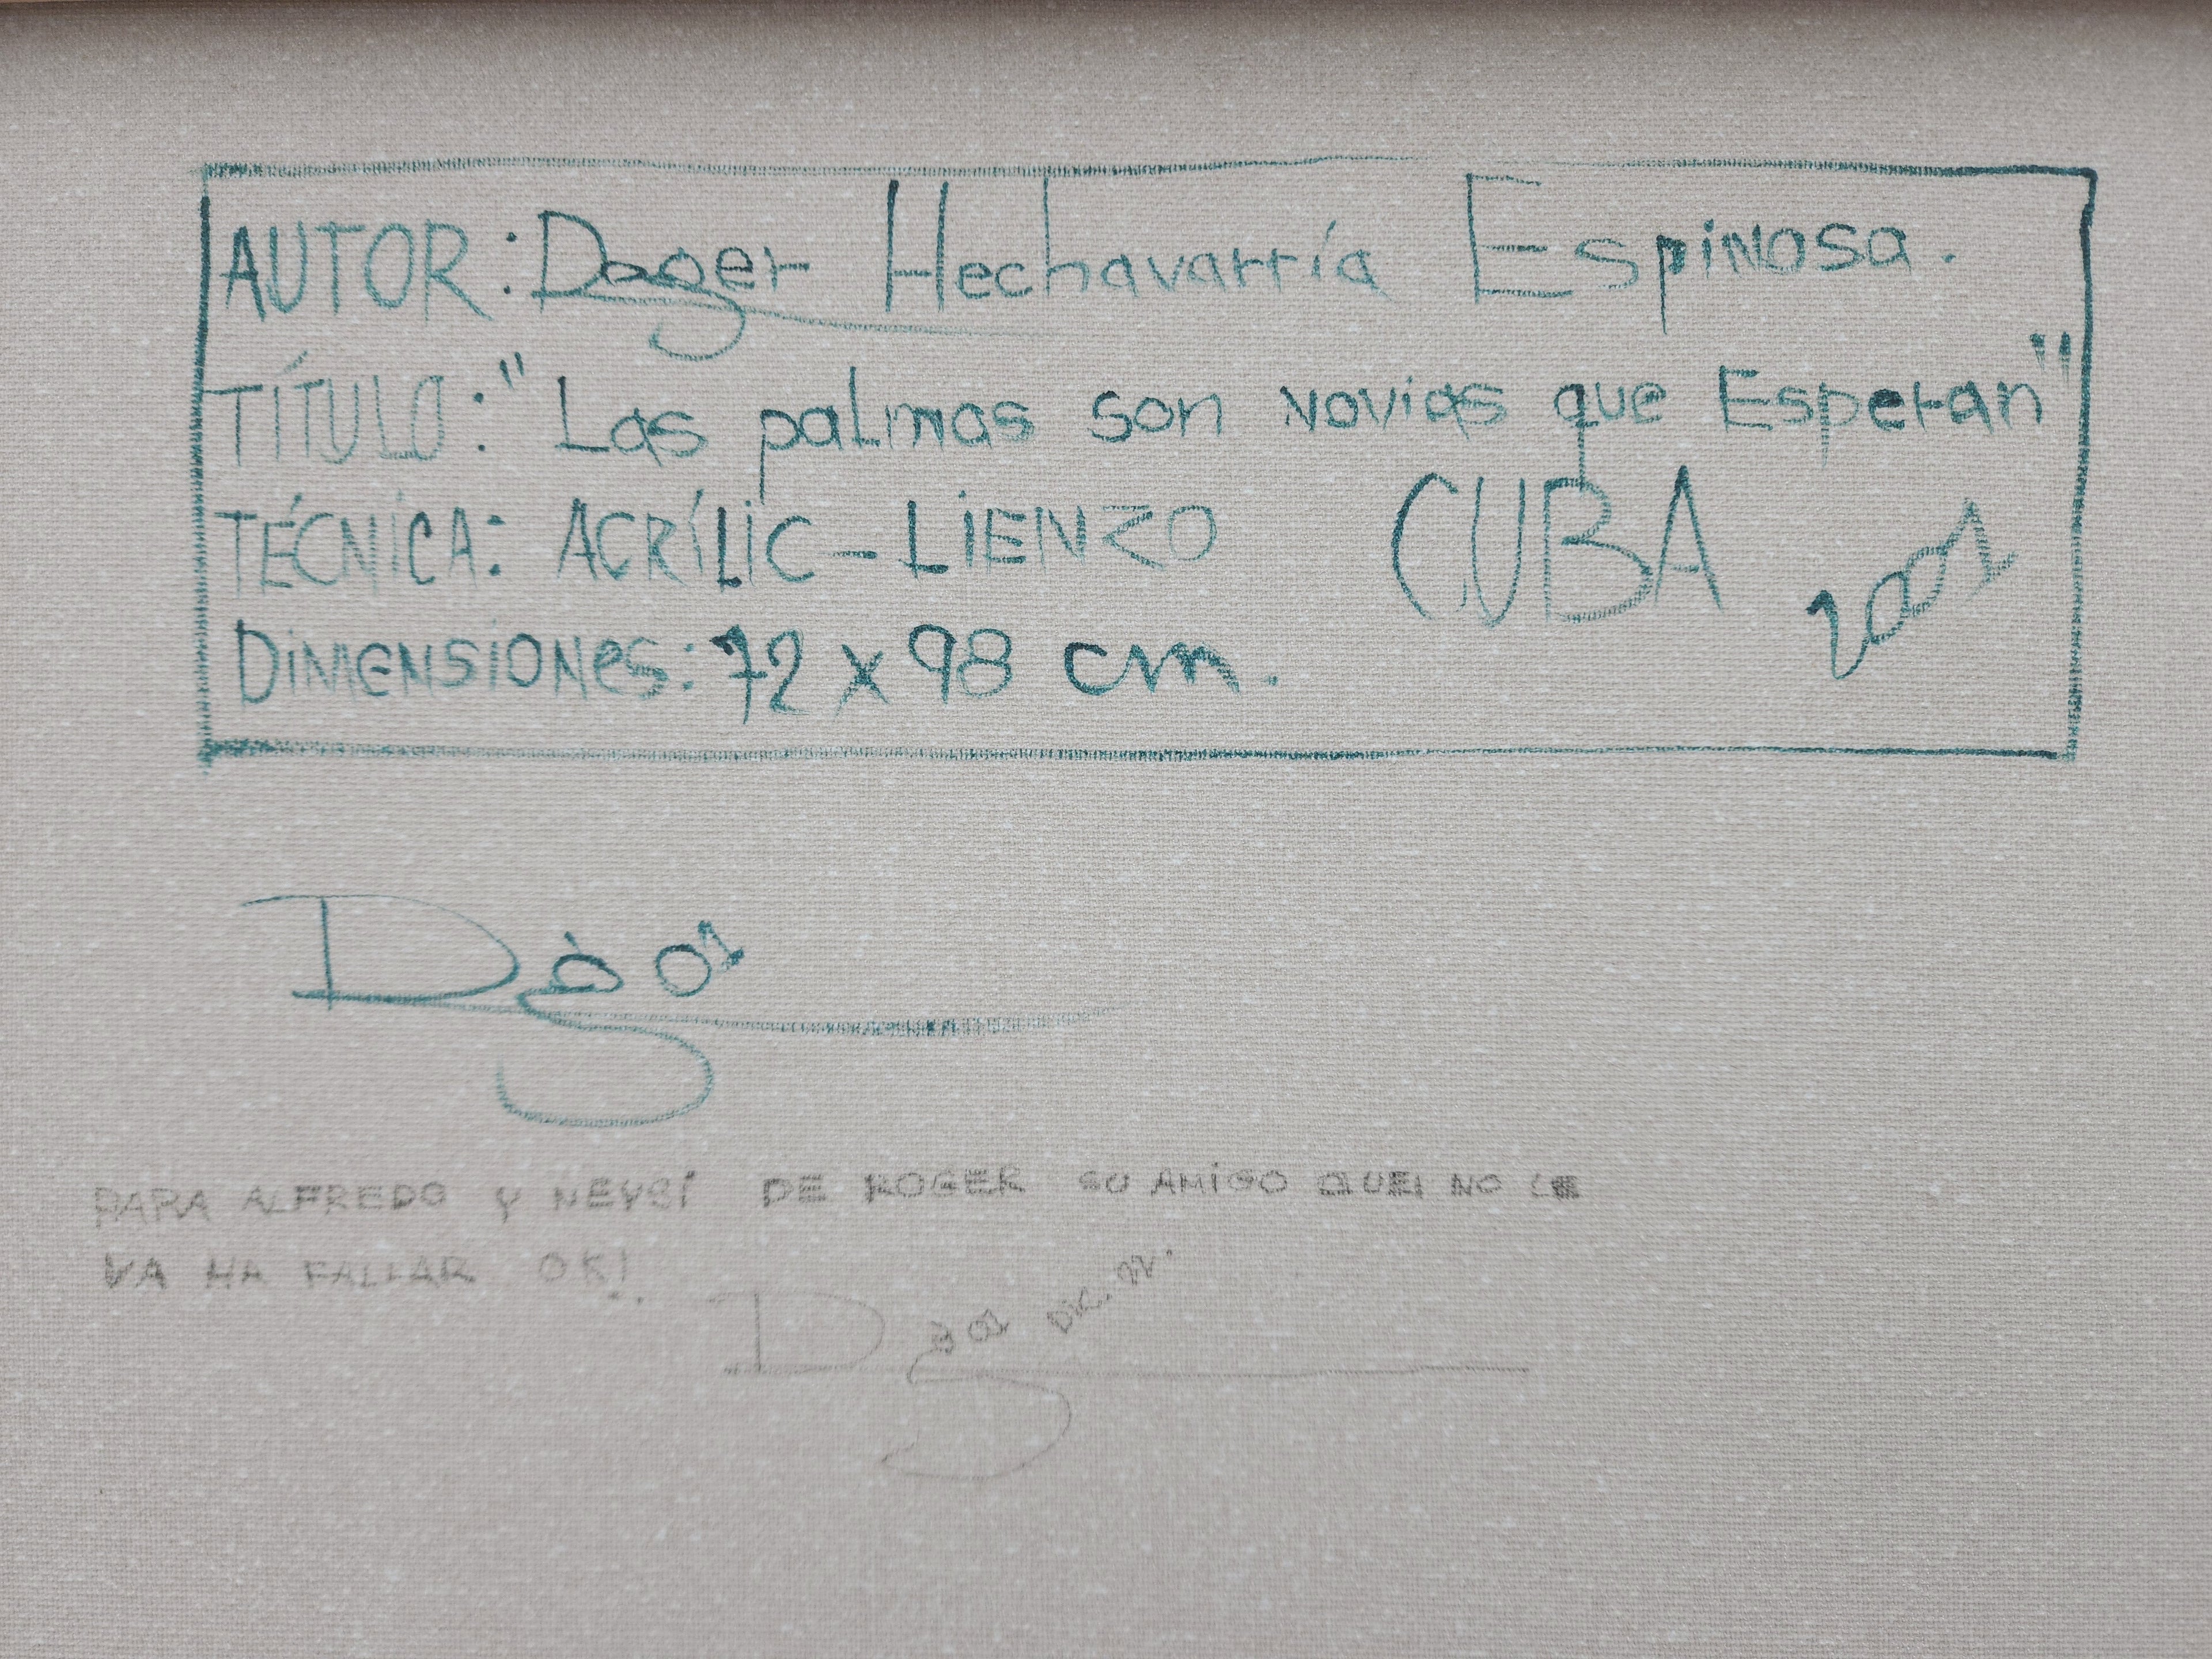 AUTOR: Dager Hechavarría Espinosa.
TÍTULO: "Las palmas son novias que Esperan"
TÉCNICA: ACRÍLIC - LIENZO CUBA 2001
DIMENSIONES: 72 x 98 cm.
Dag 01
PARA ALFREDO Y NEYSI DE ROGER SU AMIGO QUE NO LE
VA HA FALLAR OK!
Dag 01 Dic. 22.